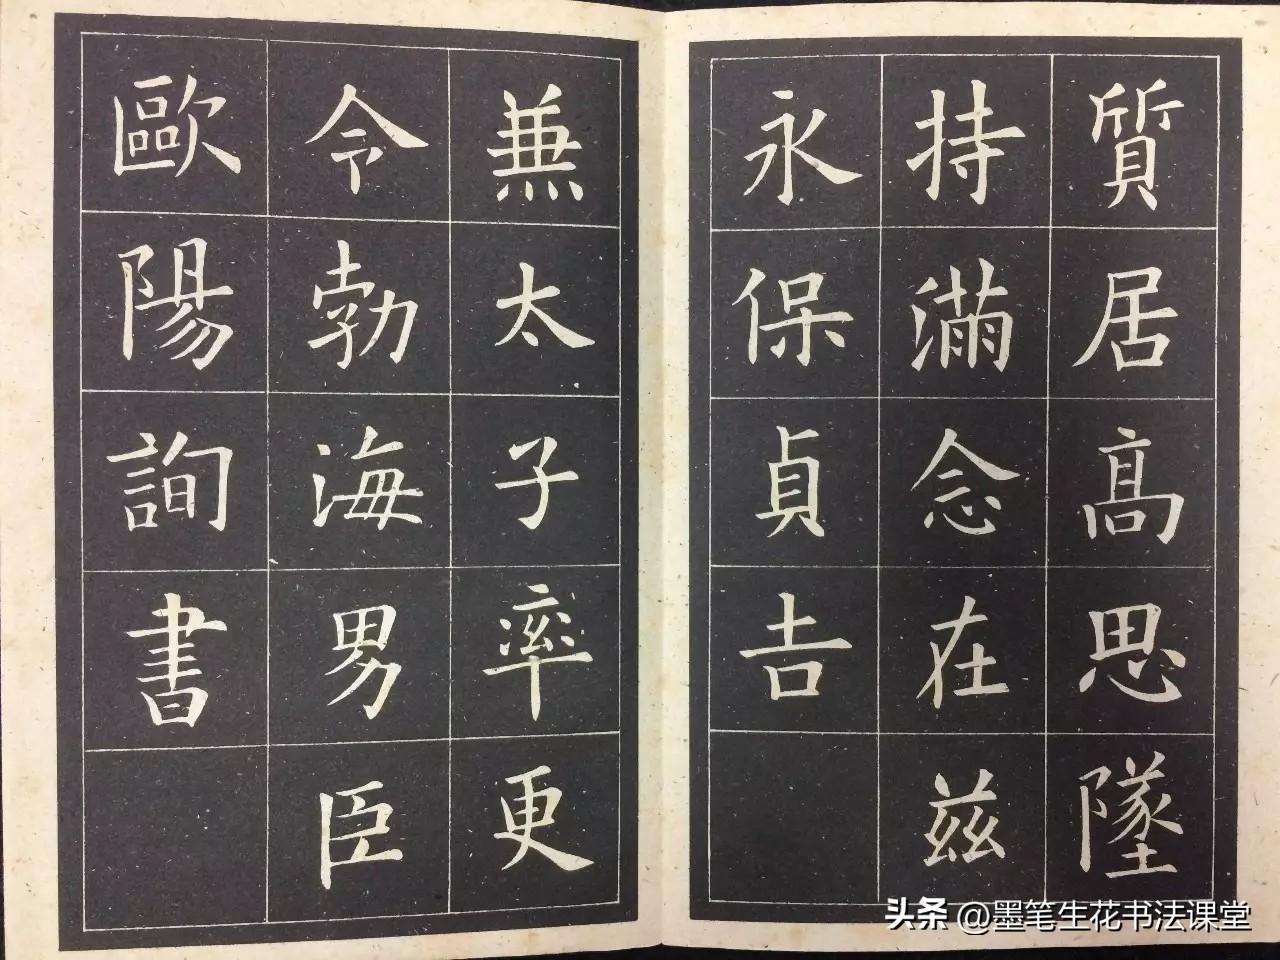 質居高思墜
持滿念在茲
永保貞吉
兼太子率更
令勃海男臣
歐陽詢書
头条 @墨笔生花书法课堂